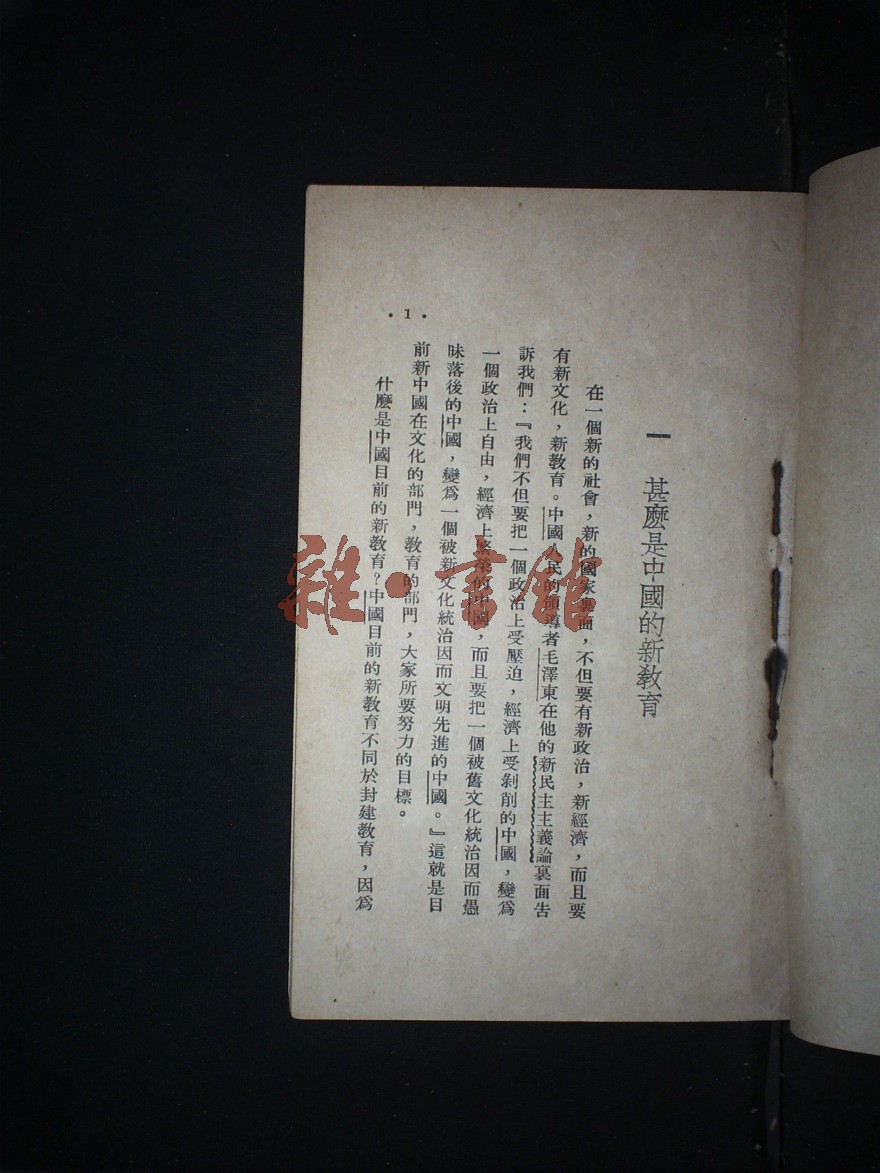 一　甚麼是中國的新教育
在一個新的社會，新的國家裏面，不但要有新政治，新經濟，而且要
有新文化，新教育。中國人民的領導者毛澤東在他的新民主主義論裏面告
訴我們：『我們不但要把一個政治上受壓迫，經濟上受剝削的中國，變爲
一個政治上自由，經濟上繁榮的中國，而且要把一個被舊文化統治因而愚
昧落後的中國，變爲一個被新文化統治因而文明先進的中國。』這就是目
前新中國在文化的部門，教育的部門，大家所要努力的目標。
什麼是中國目前的新教育？中國目前的新教育不同於封建教育，因爲
·1·
雜·書館